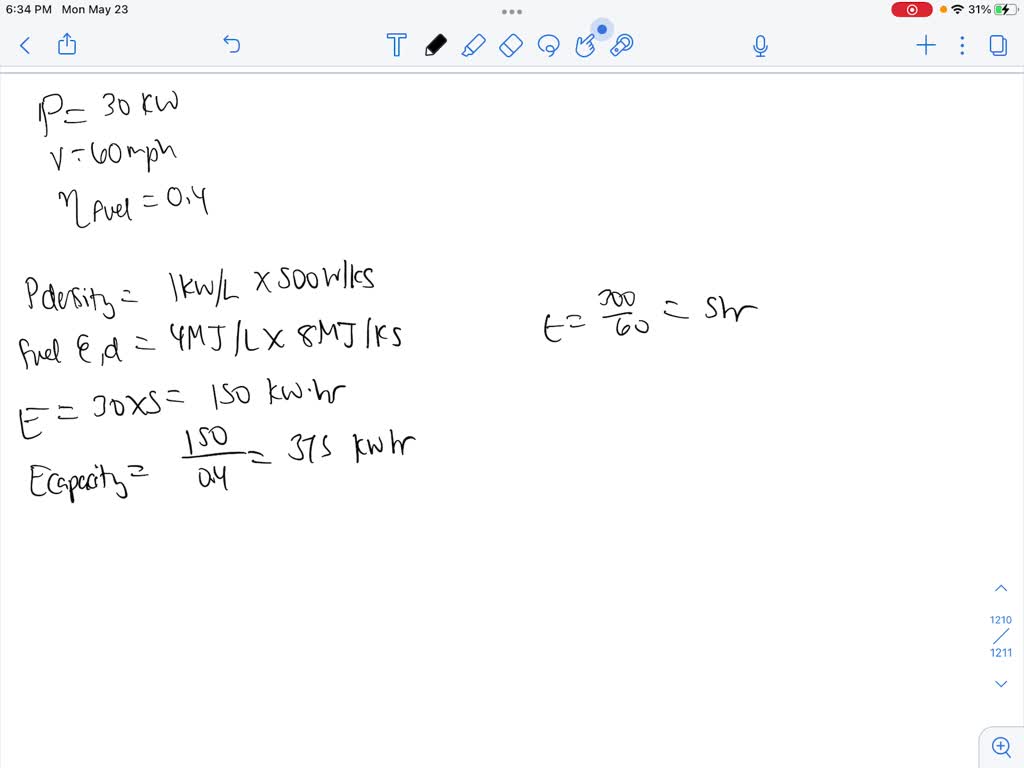 6:34 PM Mon May 23
31%
P = 30 KW
V = 60 mph
η fuel = 0.4
P density = 1 kW/L × 500 W/KS
fuel E,d = 4 MJ/L × 8 MJ/KS
t = 300/60 = 5hr
E = 30×5 = 150 kW·hr
E capacity = 150/0.4 = 375 kWhr
1210
1211